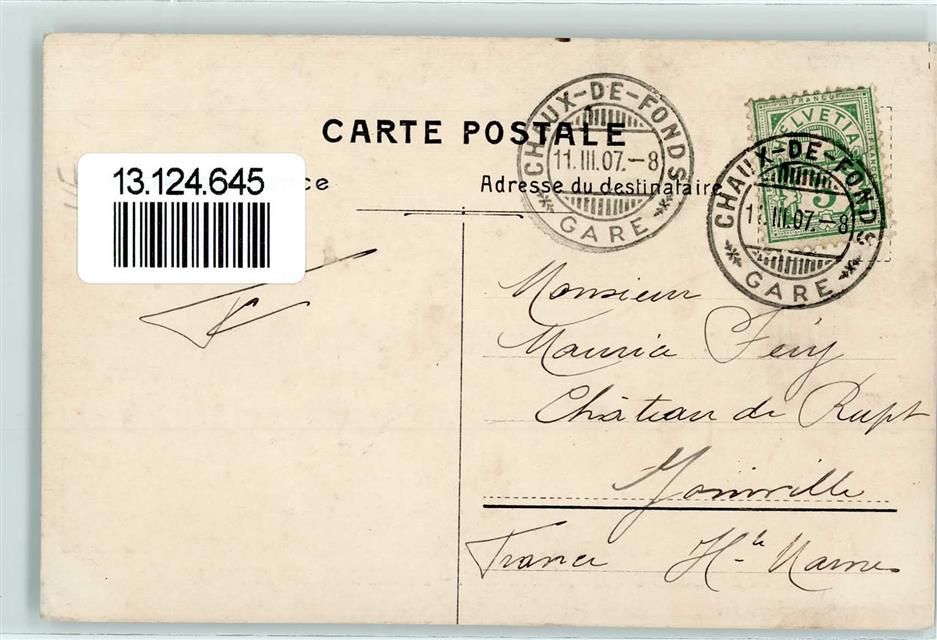 CARTE POSTALE
13.124.645
ce
Adresse du destinataire
CHAUX-DE-FONDS
11.III.07.-8
GARE
FRANCO
HELVETIA
5
CHAUX-DE-FONDS
11.III.07.-8
GARE
Monsieur
Maurice
Château de Rupt
Joinville
France Hte Marne